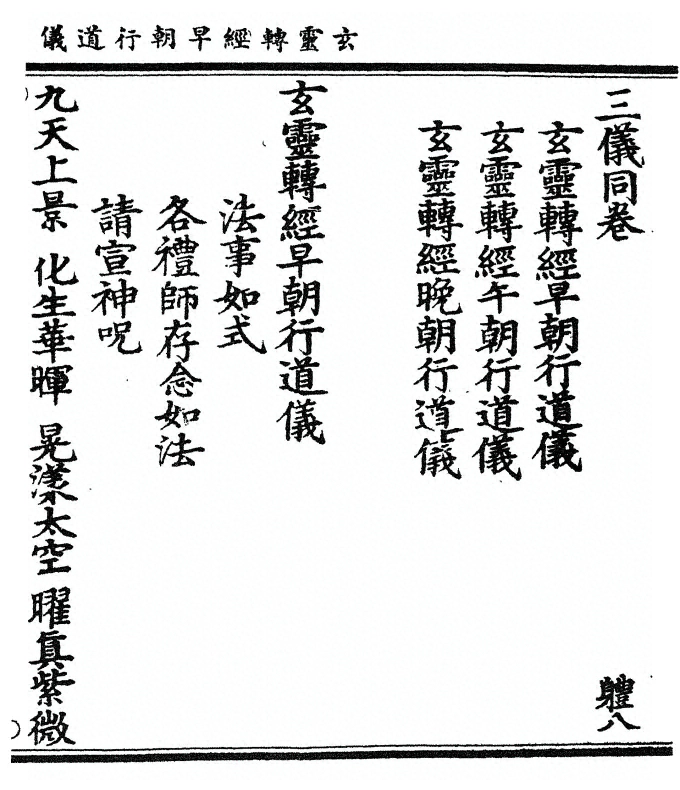 玄靈轉經早朝行道儀
三儀同卷　軆八
玄靈轉經早朝行道儀
玄靈轉經午朝行道儀
玄靈轉經晚朝行道儀
玄靈轉經早朝行道儀
法事如式
各禮師存念如法
請宣神呪
九天上景　化生華暉　晃漾太空　曜真紫微